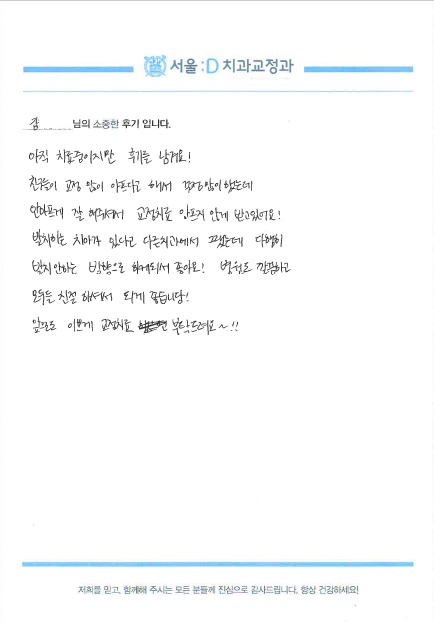 서울:D 치과교정과
님의 소중한 후기 입니다.
아직 치료중이지만 후기를 남겨요!
친구들이 교정 많이 아프다고 해서 걱정많이했는데
안아프게 잘 해주셔서 교정치료 아프지 않게 받고있어요!
발치하는 치아가 있다고 다른치과에서 그랬는데 다행히
발치안하는 방향으로 하게되서 좋아요! 병원도 깔끔하고
모두들 친절 하셔서 되게 좋습니당!
앞으로도 이쁘게 교정치료 부탁드려요~!!
저희를 믿고, 함께해 주시는 모든 분들께 진심으로 감사드립니다. 항상 건강하세요!